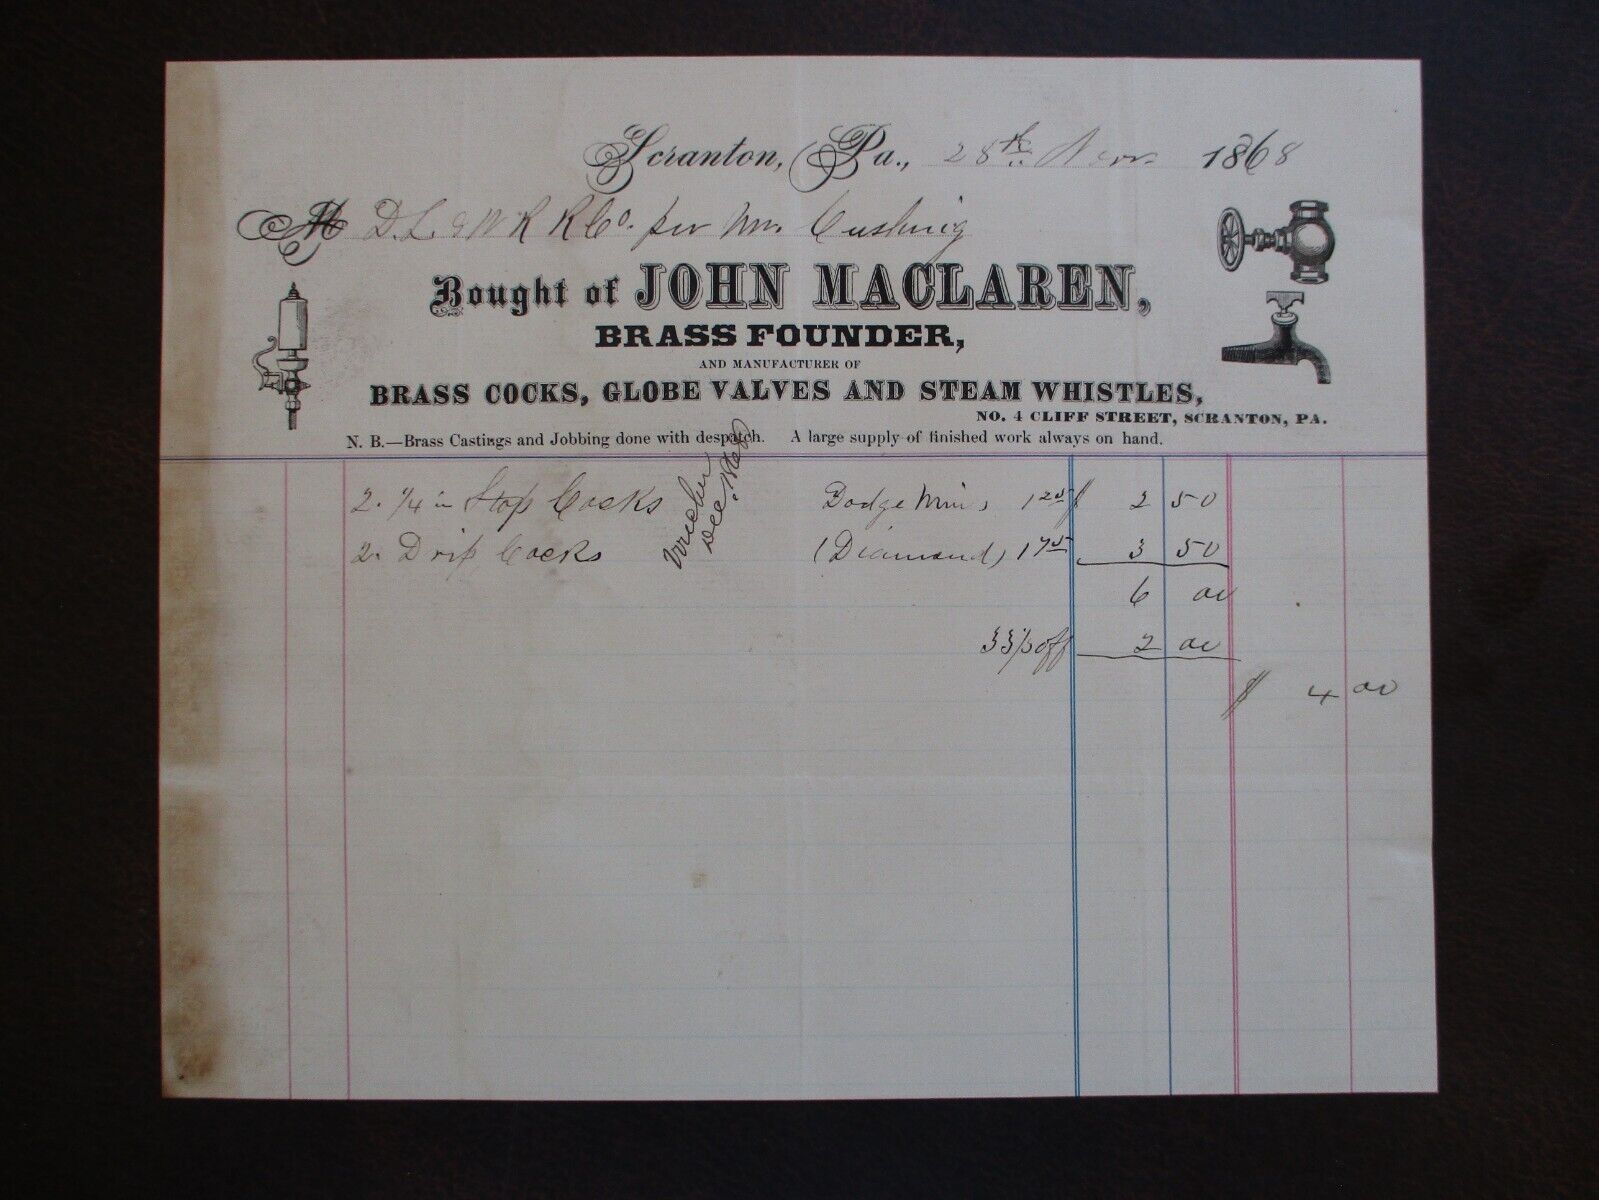 Scranton, Pa., 28th Nov. 1868
M D. L. & W R R Co. per Mr. Cushing
Bought of JOHN MACLAREN,
BRASS FOUNDER,
AND MANUFACTURER OF
BRASS COCKS, GLOBE VALVES AND STEAM WHISTLES,
NO. 4 CLIFF STREET, SCRANTON, PA.
N. B.—Brass Castings and Jobbing done with despatch. A large supply of finished work always on hand.
2. 1/4 in Stop Cocks Dodge Mines 1 25 $ 2 50
2. Drip Cocks (Diamond) 1 75 3 50
Voucher
Dec.
6 00
33 1/3 off 2 00
$ 4 00